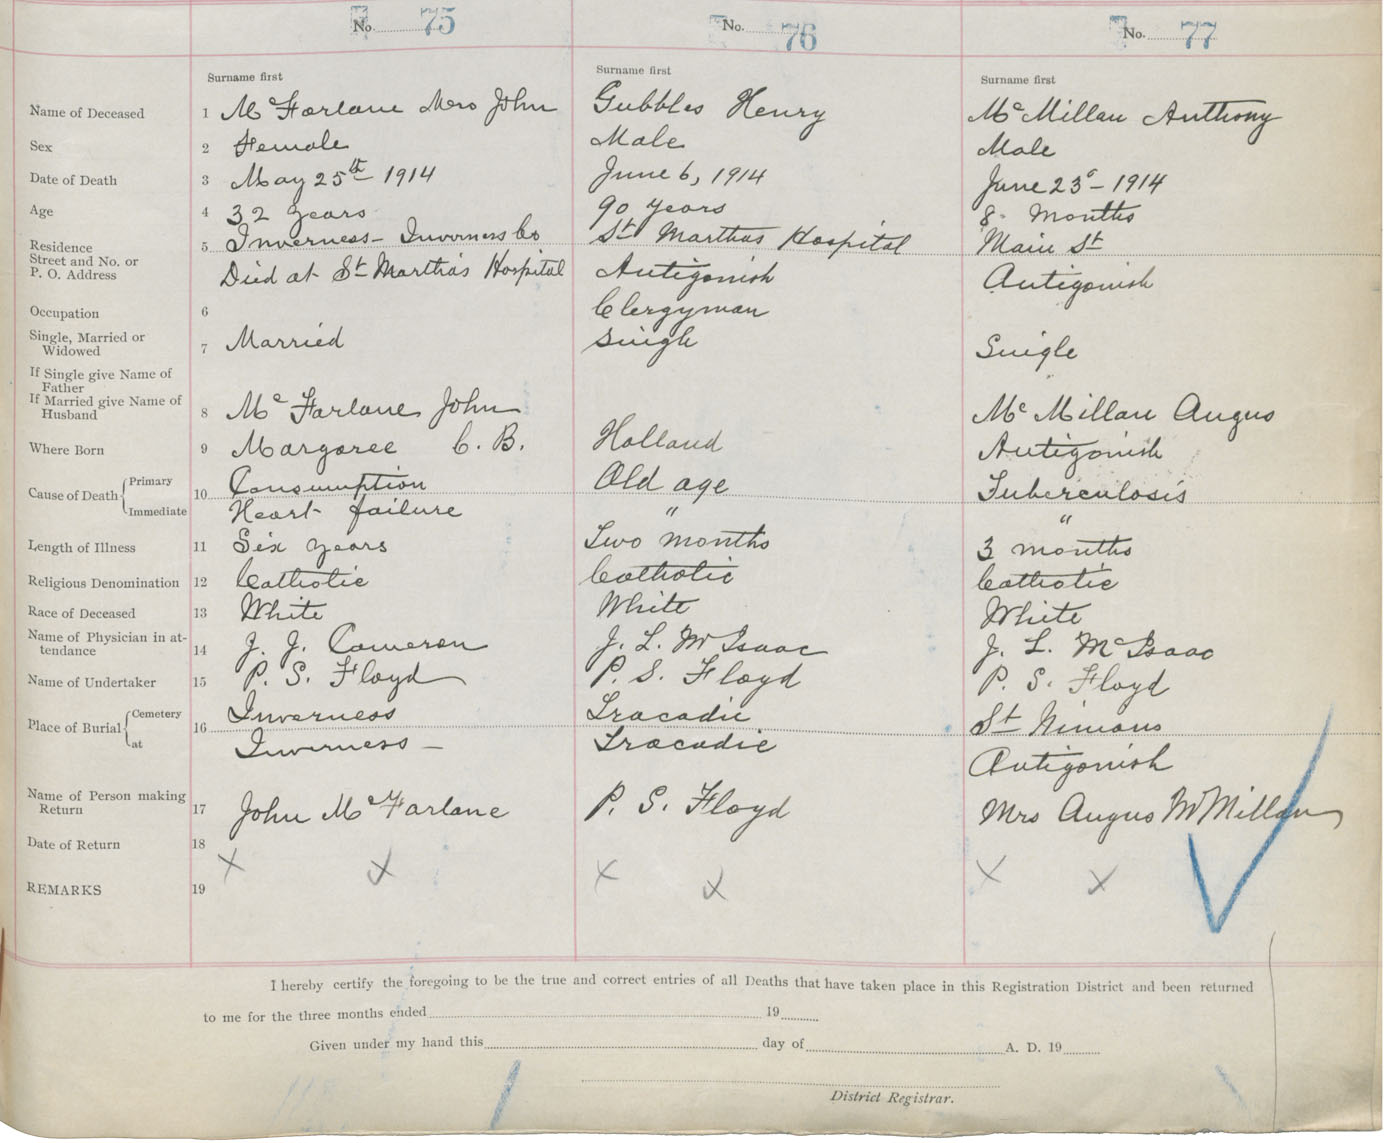 No. 75 No. 76 No. 77
Surname first Surname first Surname first
Name of Deceased 1 McFarlane Mrs John Gubbles Henry McMillan Anthony
Sex 2 Female Male Male
Date of Death 3 May 25th 1914 June 6, 1914 June 23d - 1914
Age 4 32 years 90 years 8 months
Residence 5 Inverness - Inverness Co St Marthas Hospital Main St
Street and No. or
P. O. Address Died at St Martha's Hospital Antigonish Antigonish
Occupation 6 Clergyman
Single, Married or
Widowed 7 Married Single Single
If Single give Name of
Father
If Married give Name of
Husband 8 McFarlane John McMillan Angus
Where Born 9 Margaree C. B. Holland Antigonish
Cause of Death 10 Primary Consumption Old age Tuberculosis
Immediate Heart failure " "
Length of Illness 11 Six years Two months 3 months
Religious Denomination 12 Catholic Catholic Catholic
Race of Deceased 13 White White White
Name of Physician in at-
tendance 14 J. J. Cameron J. L. McIsaac J. L. McIsaac
Name of Undertaker 15 P. S. Floyd P. S. Floyd P. S. Floyd
Place of Burial 16 Cemetery Inverness Tracadie St Ninians
at Inverness - Tracadie Antigonish
Name of Person making
Return 17 John McFarlane P. S. Floyd Mrs Angus McMillan
Date of Return 18
x x x x x x
REMARKS 19
I hereby certify the foregoing to be the true and correct entries of all Deaths that have taken place in this Registration District and been returned
to me for the three months ended 19
Given under my hand this day of A. D. 19
District Registrar.